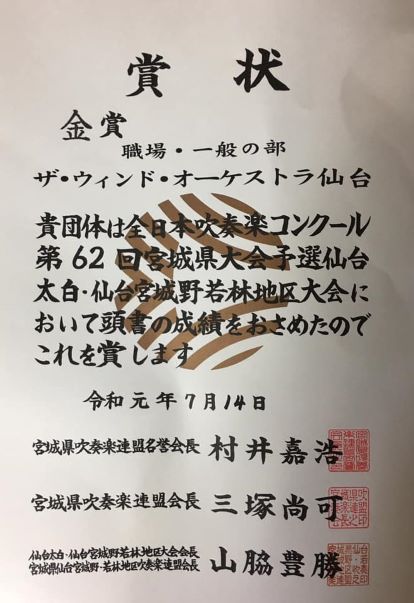 賞状
金賞
職場・一般の部
ザ・ウィンド・オーケストラ仙台
貴団体は全日本吹奏楽コンクール
第62回宮城県大会予選仙台
太白・仙台宮城野若林地区大会に
おいて頭書の成績をおさめたので
これを賞します
令和元年7月14日
宮城県吹奏楽連盟名誉会長 村井嘉浩
宮城県吹奏楽連盟会長 三塚尚可
仙台太白・仙台宮城野・若林地区大会会長
宮城県仙台宮城野・若林地区吹奏楽連盟会長 山脇豊勝